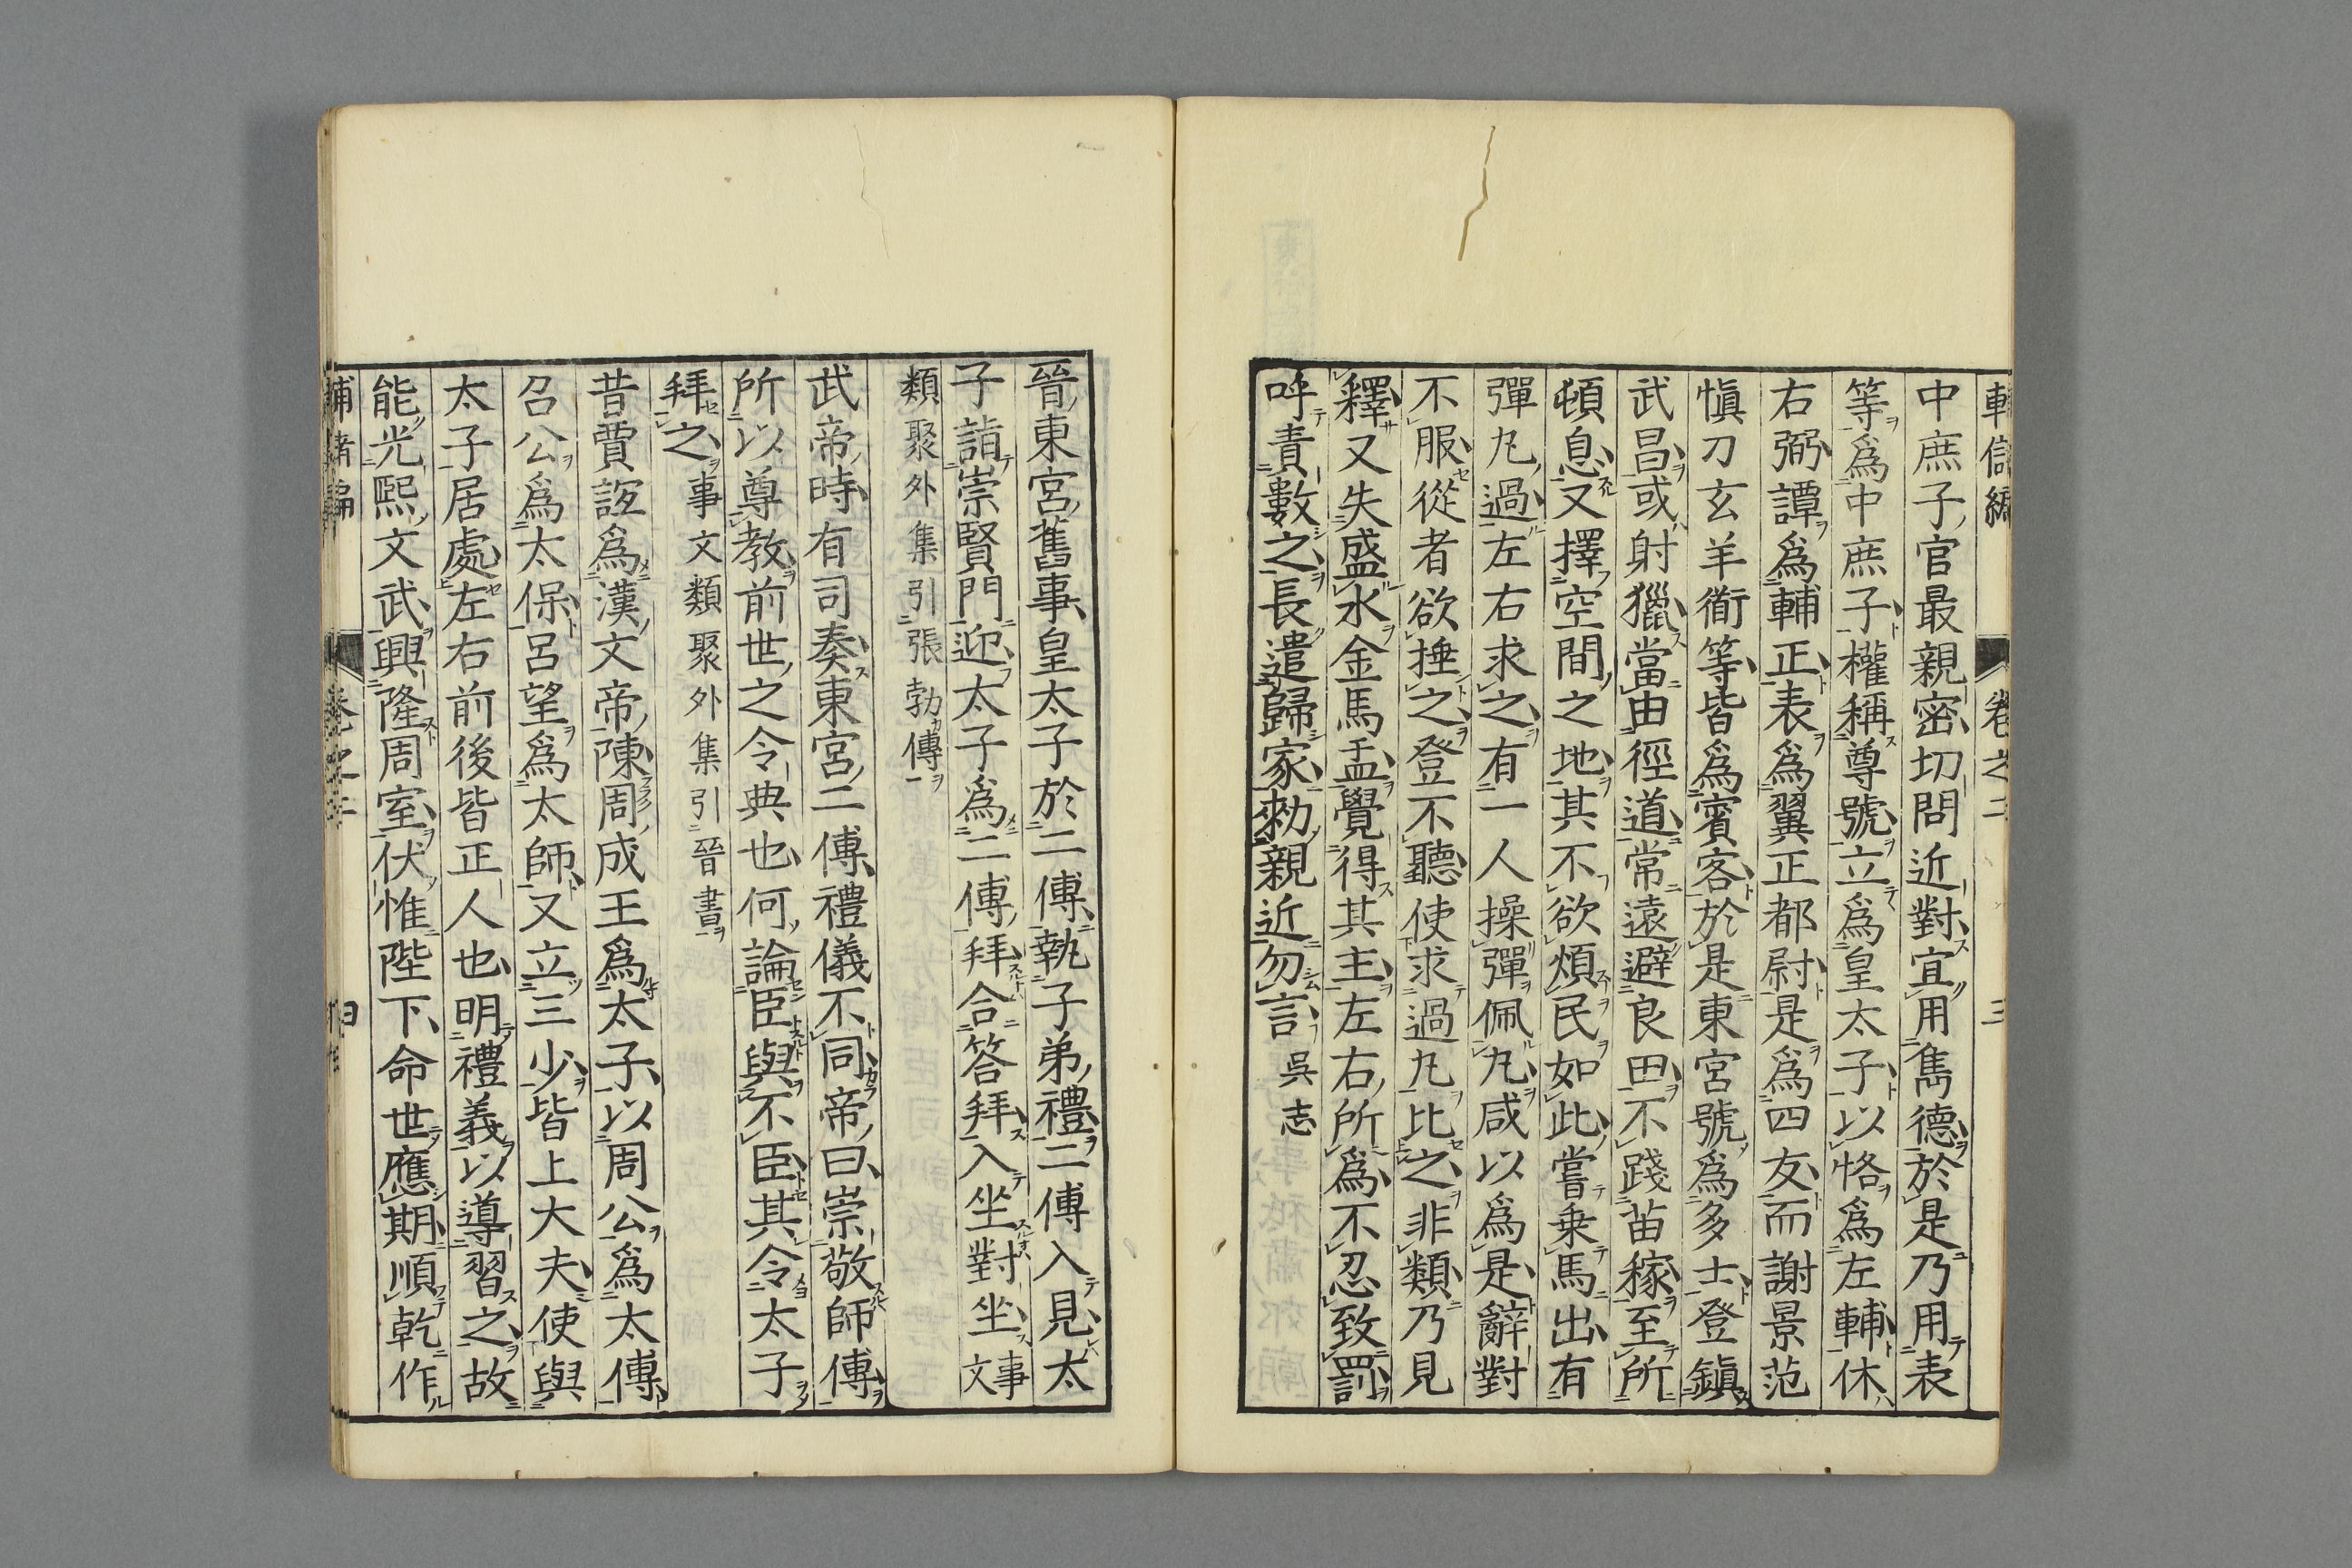 中庶子官最親密切問近對宜用雋德於是乃用表
等爲中庶子權稱尊號立爲皇太子以恪爲左輔休
右弼譚爲輔正表爲翼正都尉是爲四友而謝景范
愼刀玄羊衜等皆爲賓客於是東宮號爲多士登鎭
武昌或射獵當由徑道常遠避良田不踐苗稼至所
頓息又擇空間之地其不欲煩民如此嘗乗馬出有
彈丸過左右求之有一人操彈佩丸咸以爲是辭對
不服從者欲捶之登不聽使求過丸比之非類乃見
釋又失盛水金馬盂覺得其主左右所爲不忍致罰
呼責數之長遣歸家勑親近勿言吳志
晉東宮舊事皇太子於二傅執子弟禮二傅入見太
子詣崇賢門迎太子爲二傅拜合答拜入坐對坐事文
類聚外集引張勃傳
武帝時有司奏東宮二傅禮儀不同帝曰崇敬師傅
所以尊教前世之令典也何論臣與不臣其令太子
拜之事文類聚外集引晉書
昔賈誼爲漢文帝陳周成王爲太子以周公爲太傅
召公爲太保呂望爲太師又立三少皆上大夫使與
太子居處左右前後皆正人也明禮義以導習之故
能光熙文武興隆周室伏惟陛下命世應期順乾作